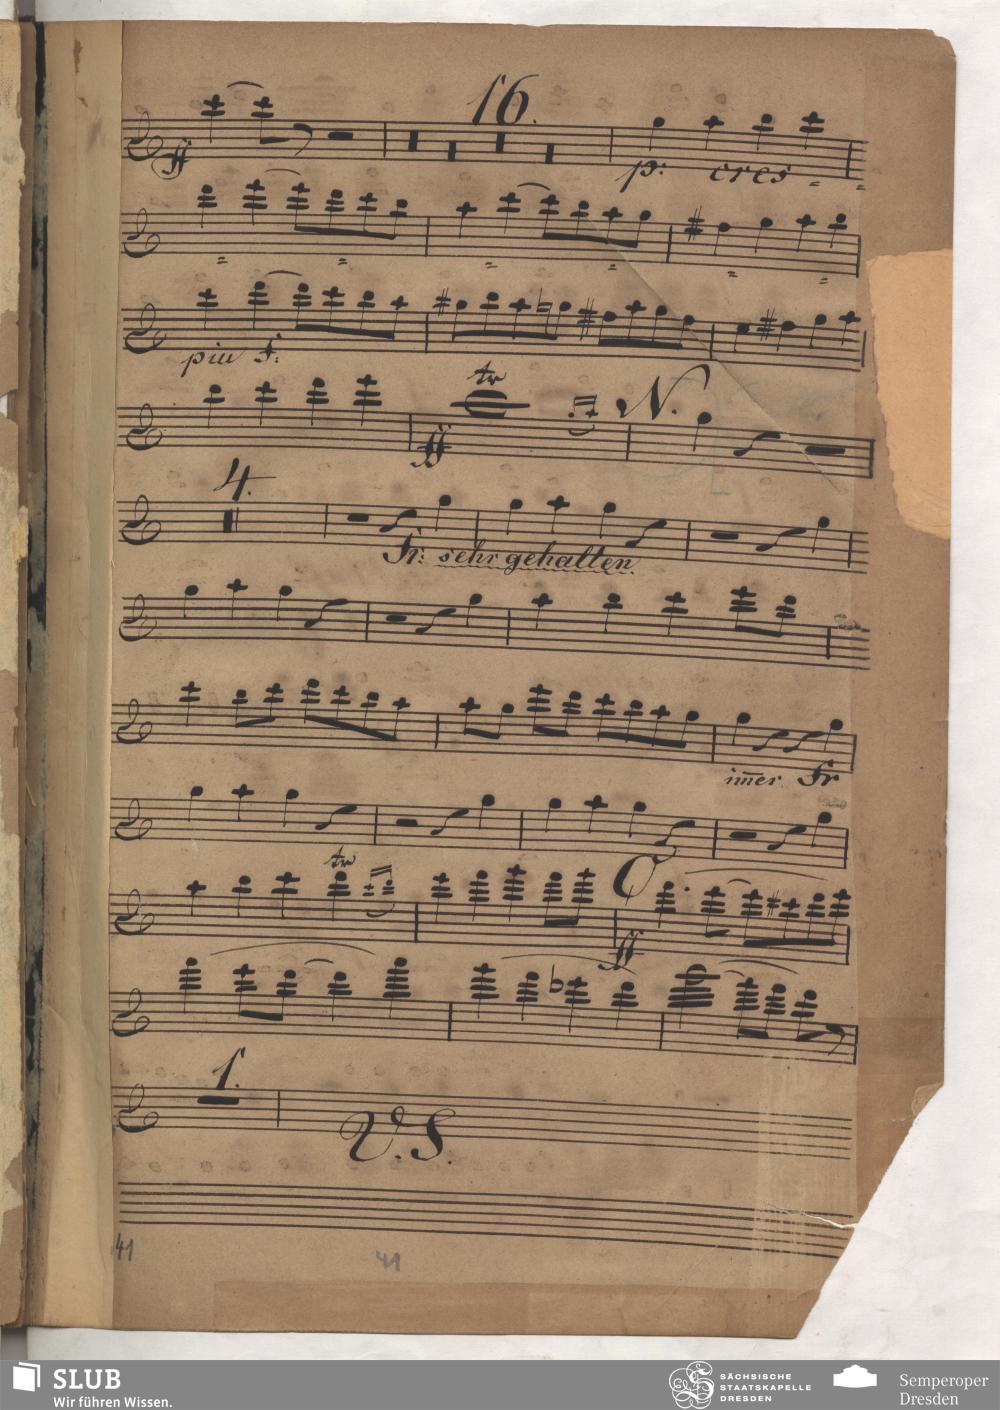 16.
ff p: cres - -
- - - - - -
piu f:
tr N.
ff
4.
Fr: sehr gehalten.
im̅er Fr
tr O
ff
1.
V. S.
41 41
SLUB
Wir führen Wissen.
SÄCHSISCHE
STAATSKAPELLE
DRESDEN
Semperoper
Dresden